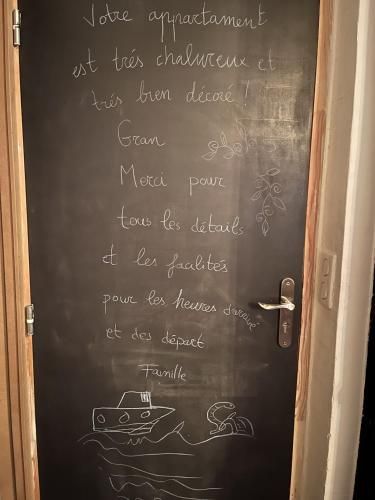 Votre appartament
est trés chalureux et
trés bien décoré !
Gran
Merci pour
tous les détails
et les facilités
pour les heures d'arrivé
et des départ
Fainille